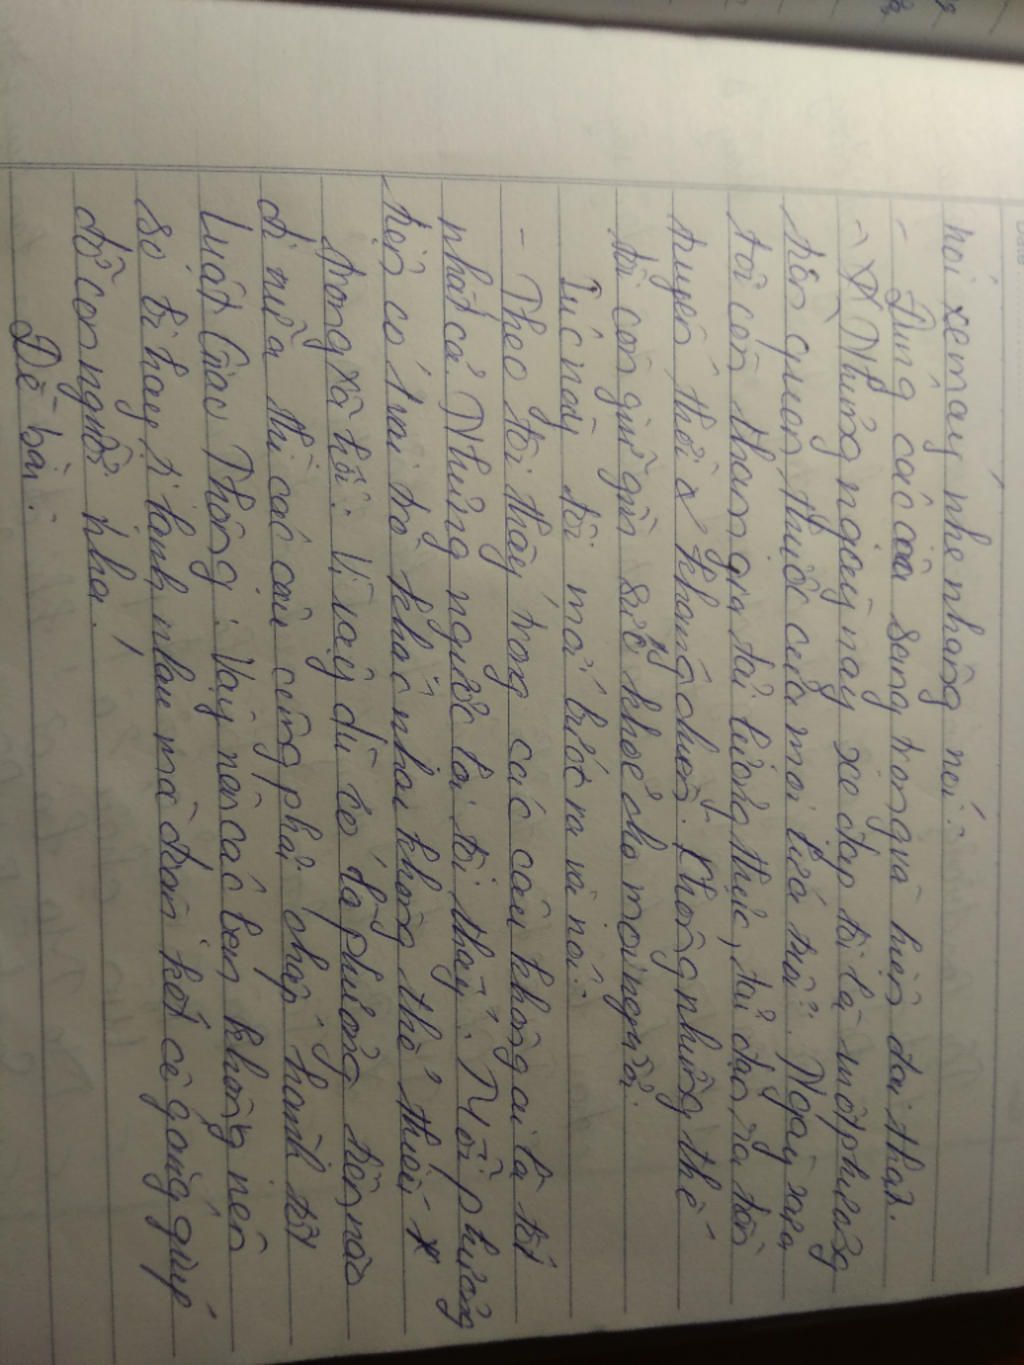 nói xe máy nhẹ nhàng nói:
- Đúng các cậu sang trọng và hiện đại thật.
- Những ngày nay xe đạp tôi là một phương
tiện quen thuộc của mọi lứa tuổi. Ngày xưa
tôi còn tham gia tải lương thực, tải đạn ra tiền
tuyến thời kháng chiến. Không những thế
tôi còn giữ gìn sức khỏe cho mọi người.
Lúc này tôi mới bước ra và nói:
- Theo tôi thấy trong các cậu không ai là tốt
nhất cả Nhưng ngược lại tôi thấy. Mỗi phương
tiện có 1 vai trò khác nhau không thể thiếu
trong xã hội. Vì vậy dù có là phương tiện nào
đi nữa thì các cậu cũng phải chấp hành tốt
Luật Giao Thông. Vậy nên các bạn không nên
so bì hay tị lạnh nhau mà đoàn kết cố gắng giúp
đỡ con người nha!
Đề bài: